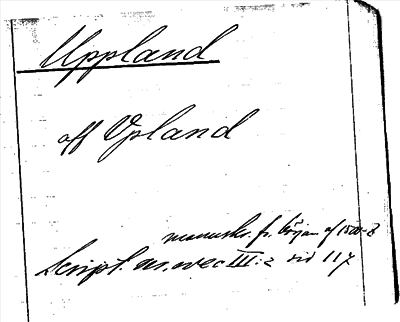 Uppland
aff Vpland
manuskr. fr. början af 1500-t
Script. rer. svec III:2 sid 117